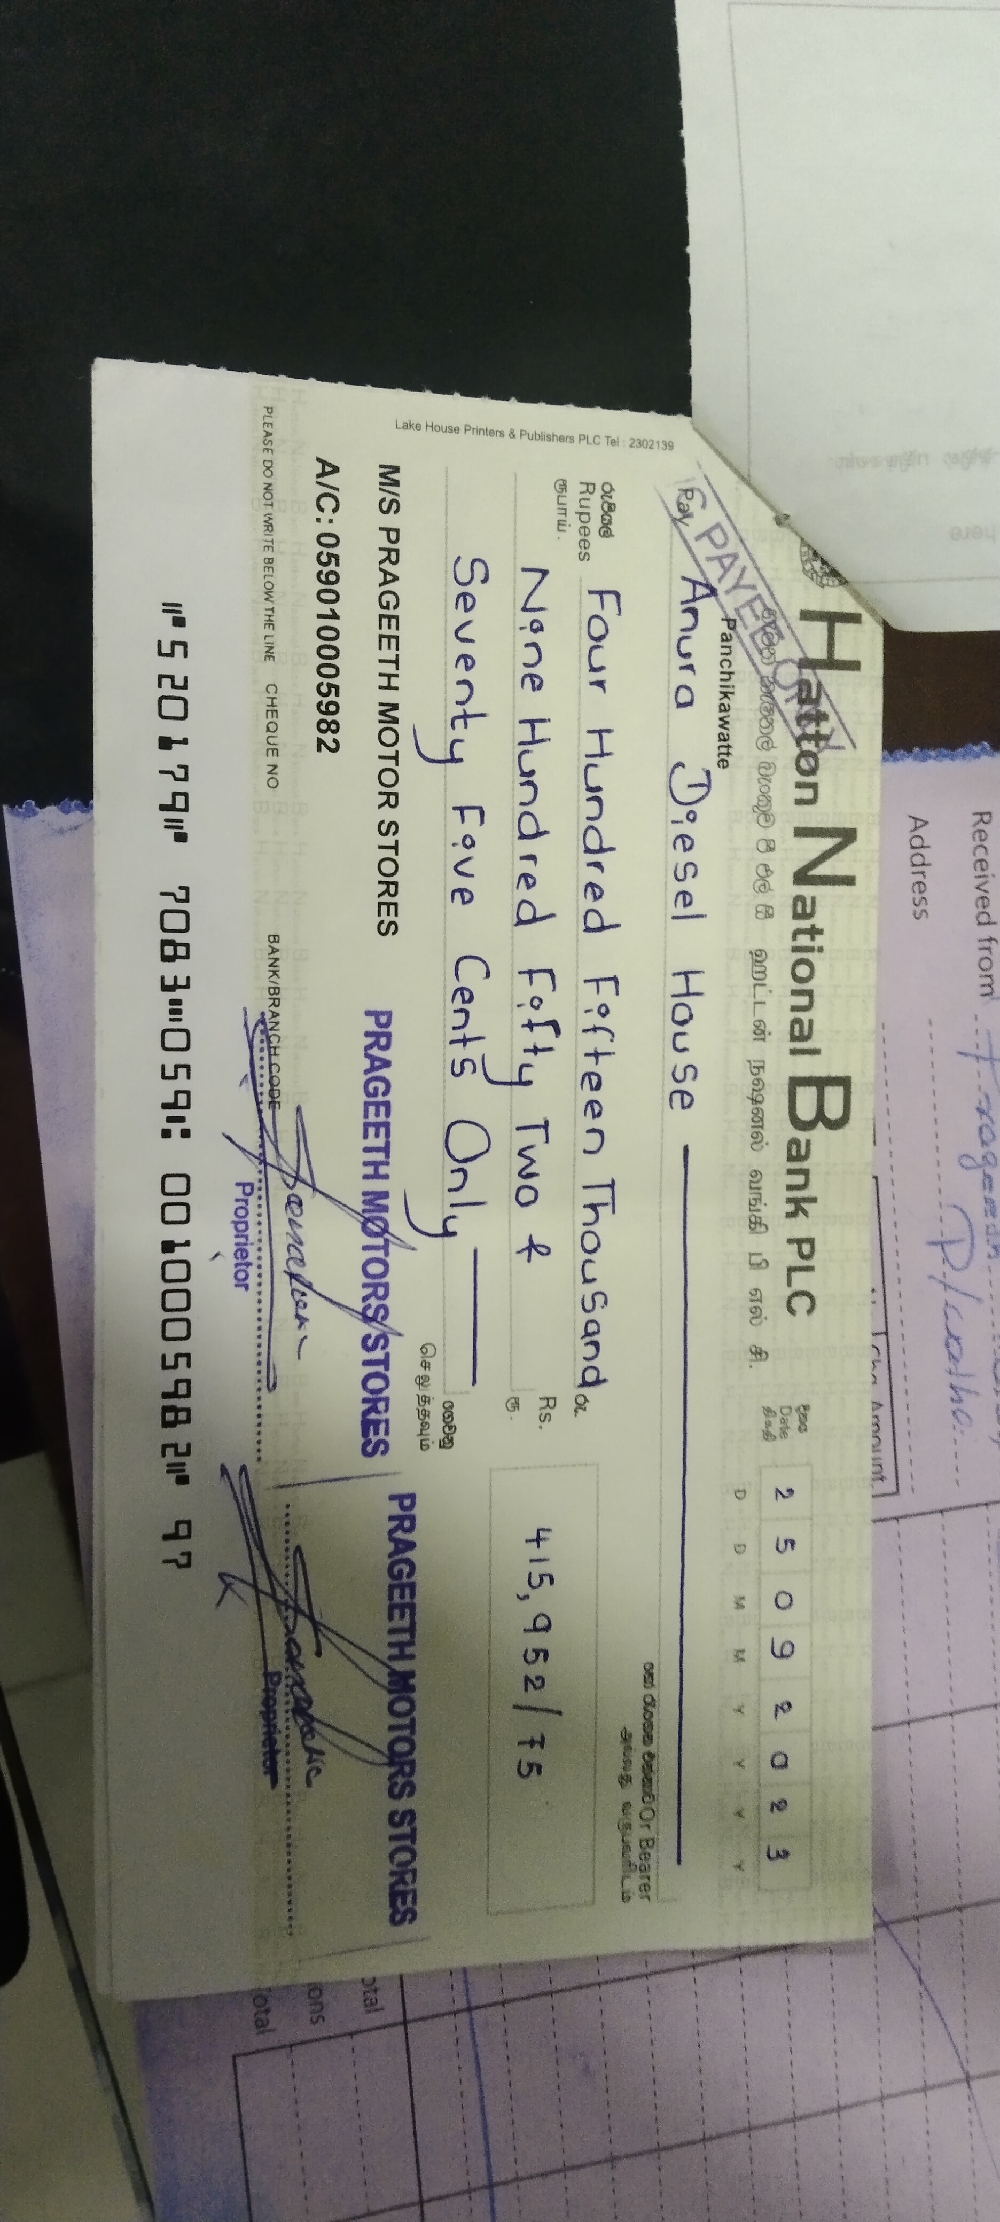 Hatton National Bank PLC
හැටන් නැෂනල් බැංකුව පී එල් සී ஹட்டன் நஷனல் வங்கி பி எல் சி.
Panchikawatte
දිනය
Date
திகதி
2 5 0 9 2 0 2 3
D D M M Y Y Y Y
PAYEE ONLY
Pay Anura Diesel House
Or Bearer
රුපියල්
Rupees
ரூபாய்.
Four Hundred Fifteen Thousand
Nine Hundred Fifty Two &
Seventy Five Cents Only
රු.
Rs.
ரூ.
415,952/75
ගෙවනු
செலுத்தவும்
M/S PRAGEETH MOTOR STORES
A/C: 059010005982
PRAGEETH MOTORS STORES
PRAGEETH MOTORS STORES
Proprietor
Proprietor
PLEASE DO NOT WRITE BELOW THE LINE CHEQUE NO BANK/BRANCH CODE
⑈520179⑈ 7083⑉059⑆ 0010005982⑈ 97
Lake House Printers & Publishers PLC Tel : 2302139
Received from
Address
Amount
here